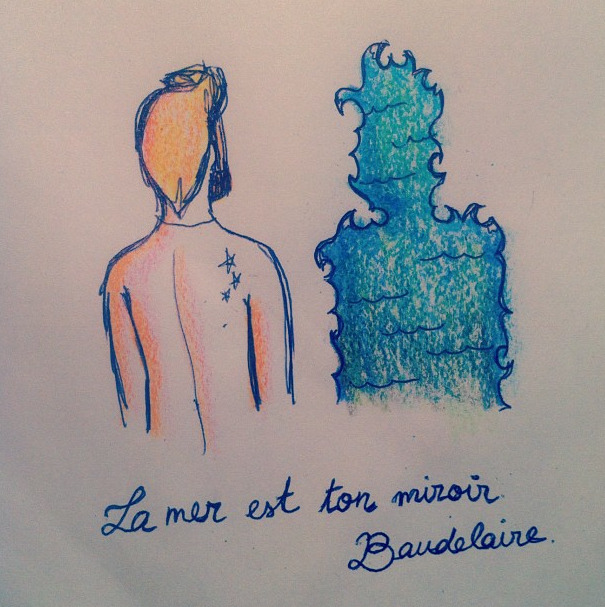 La mer est ton miroir.
Baudelaire.